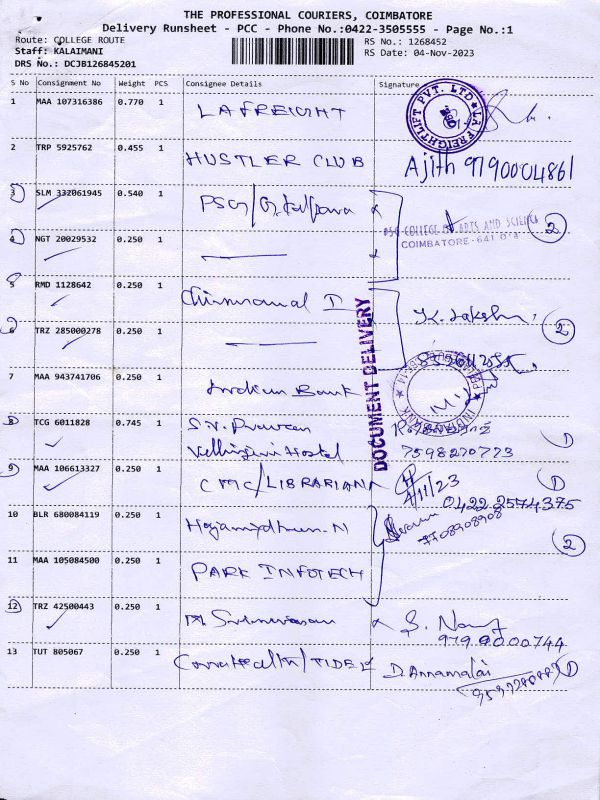 THE PROFESSIONAL COURIERS, COIMBATORE
Delivery Runsheet - PCC - Phone No.:0422-3505555 - Page No.:1
Route: COLLEGE ROUTE
Staff: KALAIMANI
DRS No.: DCJB126845201
RS No.: 1268452
RS Date: 04-Nov-2023
S No Consignment No Weight PCS Consignee Details Signature
1 MAA 107316386 0.770 1 LA FREIGHT
LA FREIGHTLIFT PVT. LTD
2 TRP 5925762 0.455 1 HUSTLER CLUB Ajith 9790004861
3 SLM 332061945 0.540 1 PSG/
PSG COLLEGE OF ARTS AND SCIENCE
COIMBATORE-641 014
2
4 NGT 20029532 0.250 1
5 RMD 1128642 0.250 1 I K.
6 TRZ 285000278 0.250 1 2
DOCUMENT DELIVERY
7 MAA 943741706 0.250 1 Indian Bank
INDIAN BANK
8 TCG 6011828 0.745 1 S.V. Pravean
Hostel 7598270773 1
9 MAA 106613327 0.250 1 CMC/LIBRARIAN 4/11/23 1
0422 2574375
10 BLR 680084119 0.250 1 7708908908 2
11 MAA 105084500 0.250 1 PARK INFOTECH
12 TRZ 42500443 0.250 1 M Srinivasan S.
9799000744
13 TUT 805067 0.250 1 D. Annamalai 1